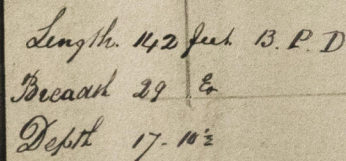 Length. 142 feet B. P. D
Breadth 29 Ex
Depth 17-10½